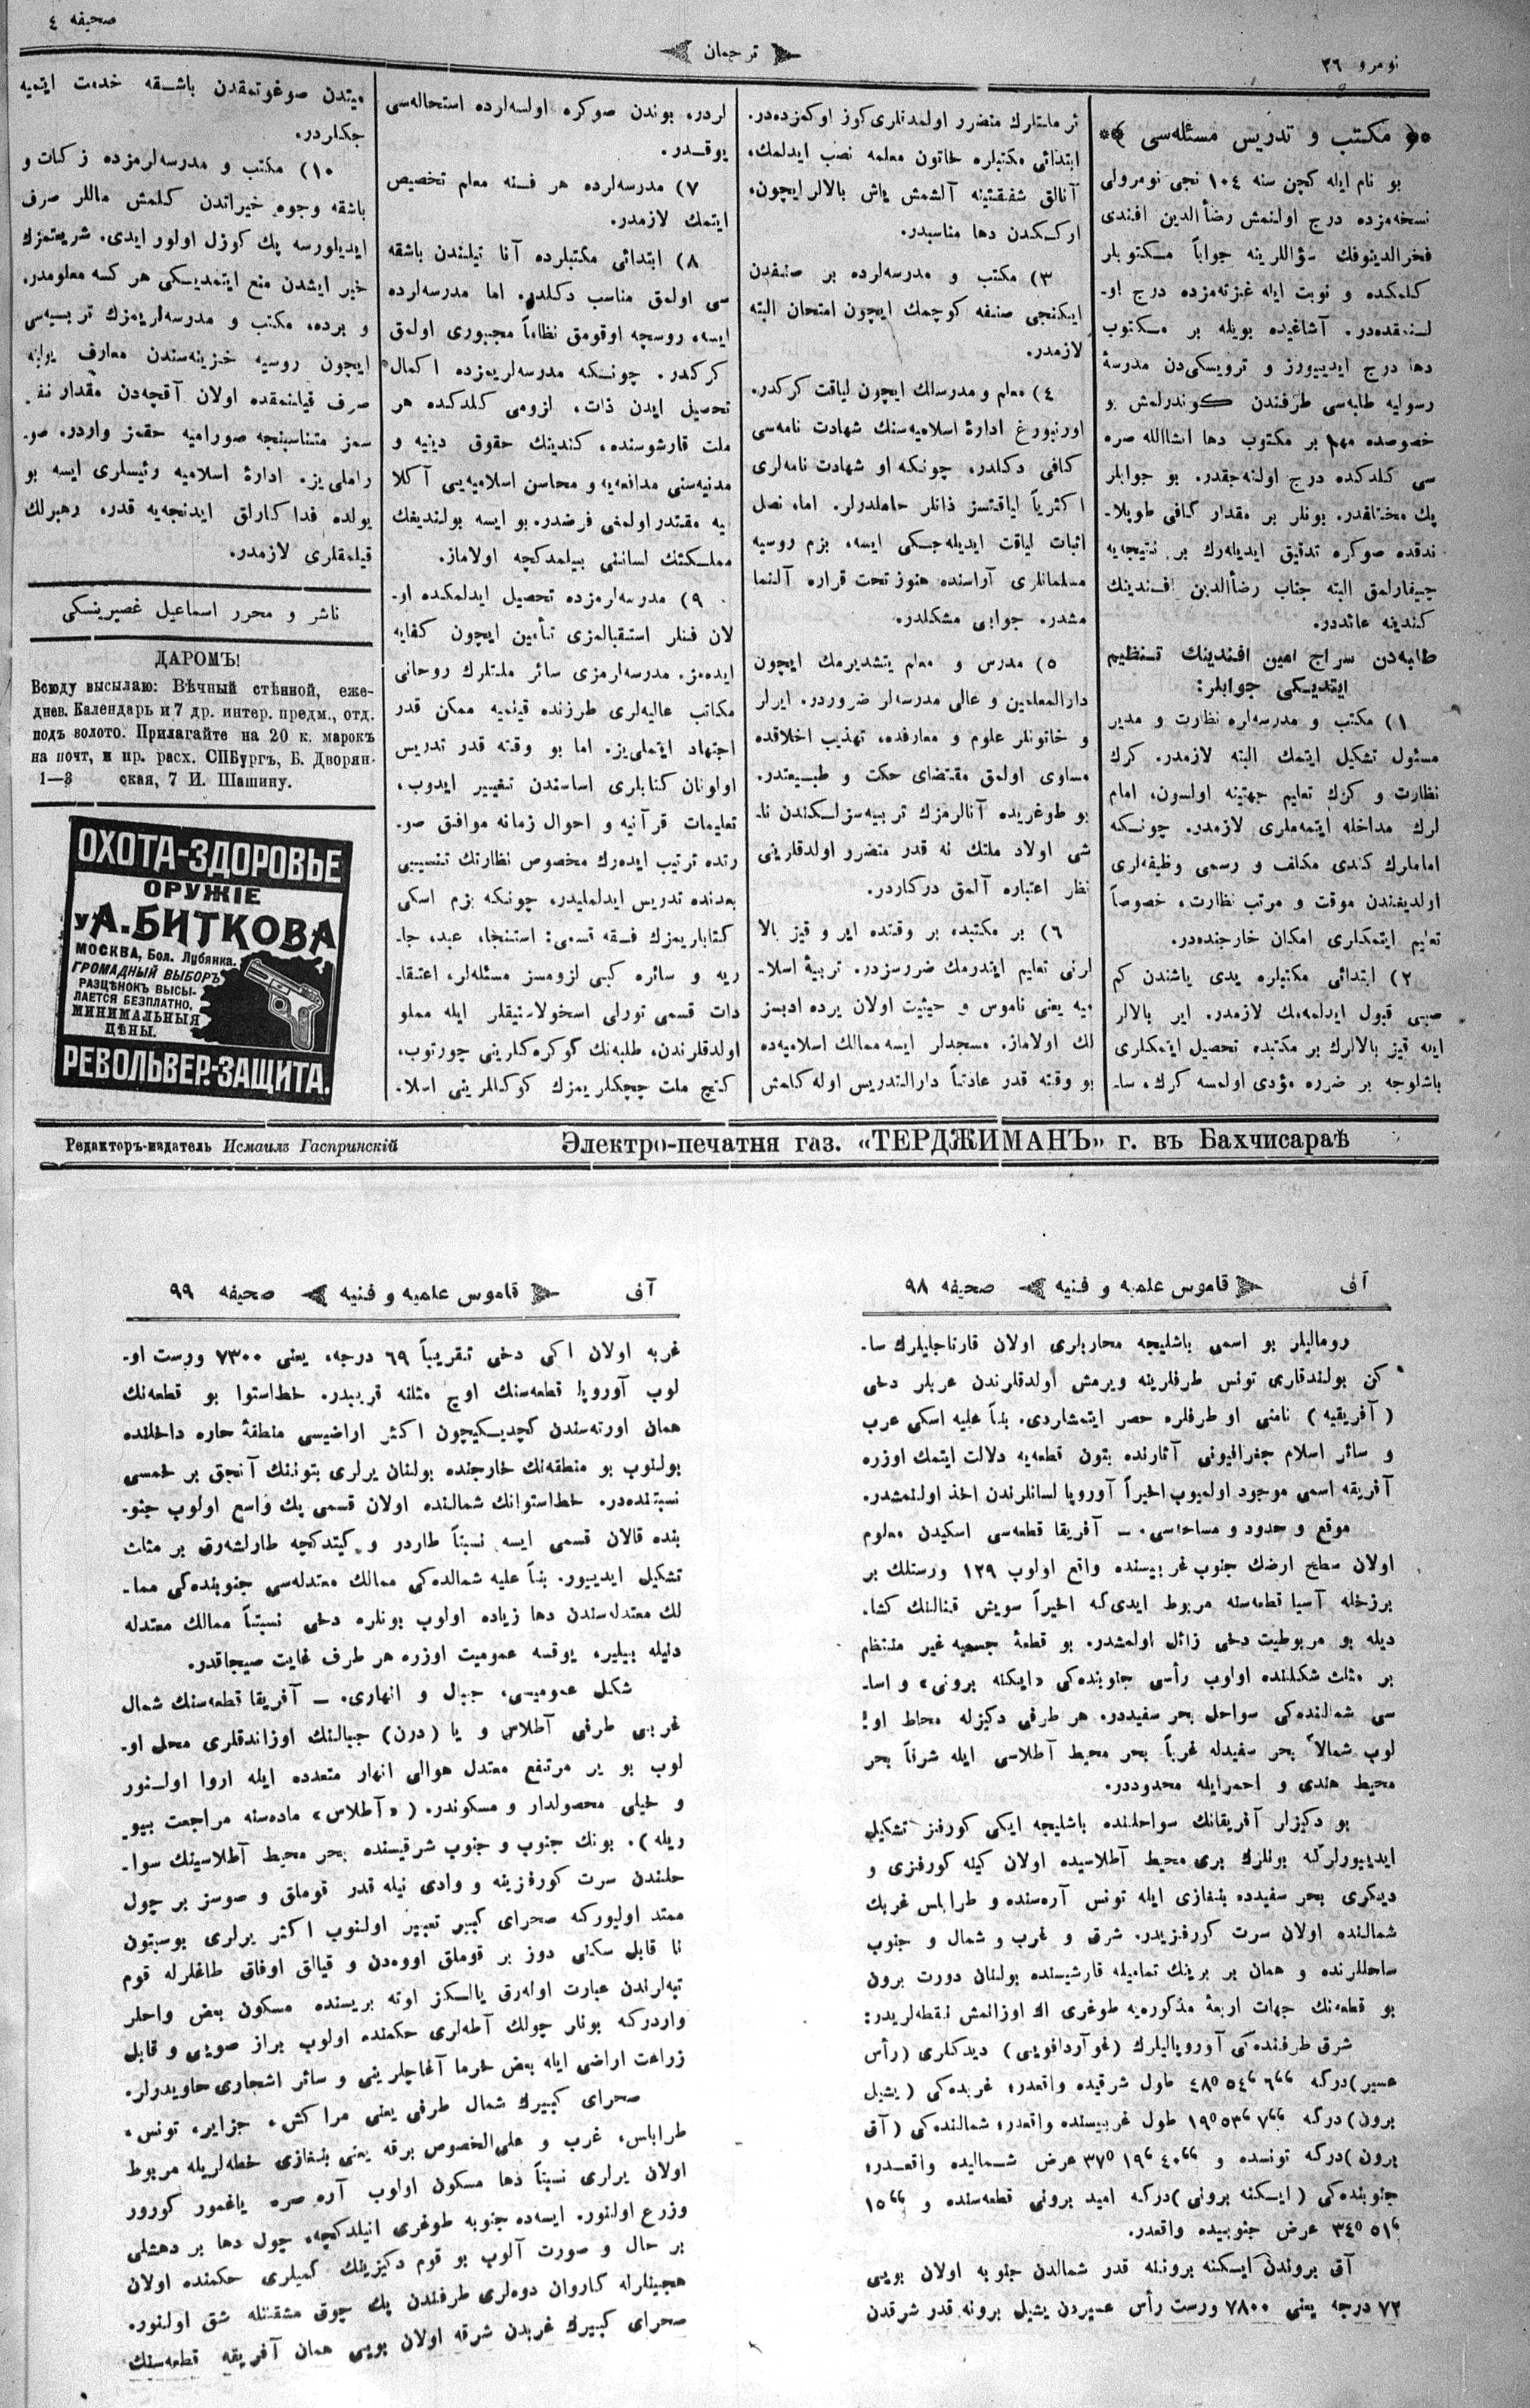 نومرو ٣٦
ترجمان
صحیفه ٤
مكتب و تدريس مسئله‌سی
بو نام ايله كچن سنه ١٠٤ نجی نومرولی
نسخه‌مزده درج اولنمش رضأالدين افندی
فخرالدينوفك سؤاللرينه جواباً مكتوبلر
كلمكده و نوبت ايله غزته‌مزده درج او-
لنمقده‌در. آشاغيده بويله بر مكتوب
دها درج ايدييورز و ترويسكی‌دن مدرسهٔ
رسوليه طلبه‌سی طرفندن كوندرلمش بو
خصوصده مهم بر مكتوب دها انشاالله صره
سی كلدكده درج اولنه‌جقدر. بو جوابلر
پك مختلفدر. بونلر بر مقدار كافی طوپلا-
ندقده صوكره تدقيق ايديله‌رك بر نتيجه‌يه
چيقارلمق البته جناب رضأالدين افندينك
كندينه عائددر.
طلبه‌دن سراج امين افندينك تنظيم
ايتديكی جوابلر:
١) مكتب و مدرسه‌لره نظارت و مدير
مسئول تشكيل ايتمك البته لازمدر. كرك
نظارت و كرك تعليم جهتينه اولسون، امام
لرك مداخله ايتمه‌ملری لازمدر. چونكه
اماملرك كندی مكلف و رسمی وظيفه‌لری
اولديغندن موقت و مرتب نظارت، خصوصاً
تعليم ايتمكلری امكان خارجنده‌در.
٢) ابتدائی مكتبلره يدی ياشندن كم
صبی قبول ايدلمه‌مك لازمدر. اير بالالر
ايله قيز بالالرك بر مكتبده تحصيل ايتمكلری
باشلوجه بر ضرره مؤدی اولمسه كرك، سا-
ئر ملتلرك متضرر اولمدقلری كوز اوكمزده‌در.
ابتدائی مكتبلره خاتون معلمه نصب ايدلمك،
آنالق شفقتينه آلشمش ياش بالالر ايچون،
ارككدن دها مناسبدر.
٣) مكتب و مدرسه‌لرده بر صنفدن
ايكنجی صنفه كوچمك ايچون امتحان البته
لازمدر.
٤) معلم و مدرسلك ايچون لياقت كركدر.
اورنبورغ ادارهٔ اسلاميه‌سنك شهادت نامه‌سی
كافی دكلدر، چونكه او شهادت نامه‌لری
اكثرياً لياقتسز ذاتلر حاملدرلر. اما، نصل
اثبات لياقت ايديله‌جكی ايسه، بزم روسيه
مسلمانلری آراسنده هنوز تحت قراره آلنما
مشدر. جوابی مشكلدر.
٥) مدرس و معلم يتشديرمك ايچون
دارالمعلمين و عالی مدرسه‌لر ضروردر. ايرلر
و خاتونلر علوم و معارفده، تهذيب اخلاقده
مساوی اولمق مقتضای حكت و طبيعتدر.
بو طوغريده آنالرمزك تربيه‌سزلكندن نا-
شی اولاد ملتك نه قدر متضرر اولدقلرينی
نظر اعتباره آلمق دركاردر.
٦) بر مكتبده بر وقتده اير و قيز بالا
لرنی تعليم ايتدرمك ضررسزدر. تربيهٔ اسلا-
ميه يعنی ناموس و حيثيت اولان يرده ادبسز
لك اولاماز. مسجدلر ايسه ممالك اسلاميه‌ده
بو وقته قدر عادتاً دارالتدريس اوله كلمش
لردر، بوندن صوكره اولسه‌لرده استحاله‌سی
يوقدر.
٧) مدرسه‌لرده هر فنه معلم تخصيص
ايتمك لازمدر.
٨) ابتدائی مكتبلرده آنا تيلندن باشقه
سی اولمق مناسب دكلدر. اما مدرسه‌لرده
ايسه، روسچه اوقومق نظاماً مجبوری اولمق
كركدر. چونكه مدرسه‌لريمزده اكمال
تحصيل ايدن ذات، لزومی كلدكده هر
ملت قارشوسنده، كندينك حقوق دينيه و
مدنيه‌سنی مدافعه‌يه و محاسن اسلاميه‌يی آكلا
يه مقتدر اولمغی فرضدر. بو ايسه بولنديغك
مملكتك لساننی بيلمدكچه اولاماز.
٩) مدرسه‌لرمزده تحصيل ايدلمكده او-
لان فنلر استقبالمزی تأمين ايچون كفايه
ايده‌مز. مدرسه‌لرمزی سائر ملتلرك روحانی
مكاتب عاليه‌لری طرزنده قيلميه ممكن قدر
اجتهاد ايتملی‌يز. اما بو وقته قدر تدريس
اولونان كتابلری اساسندن تغيير ايدوب،
تعليمات قرآنيه و احوال زمانه موافق صو-
رتده ترتيب ايده‌رك مخصوص نظارتك تنسيبی
بعدنده تدريس ايدلمليدر، چونكه بزم اسكی
كتابلريمزك فقه قسمی: استنجا، عبد، جا-
ريه و سائره كبی لزومسز مسئله‌لر، اعتقا-
دات قسمی تورلی اسخولاستيقلر ايله مملو
اولدقلرندن، طلبه‌نك كوكره‌كلرينی چورتوب،
كنچ ملت چچكلريمزك كوكللرينی اسلا-
ميتدن صوغوتمقدن باشقه خدمت ايتميه
جكلردر.
١٠) مكتب و مدرسه‌لرمزده زكات و
باشقه وجوه خيراتدن كلمش ماللر صرف
ايديلورسه پك كوزل اولور ايدی. شريعتمزك
خير ايشدن منع ايتمديكی هر كسه معلومدر.
و برده، مكتب و مدرسه‌لريمزك تربيه‌سی
ايچون روسيه خزينه‌سندن معارف يولنه
صرف قيلنمقده اولان آقچه‌دن مقدار نفو
سمز متناسبنجه صوراميه حقمز واردر. صو-
راملی‌يز. ادارهٔ اسلاميه رئيسلری ايسه بو
يولده فداكارلق ايدنجه‌يه قدر، رهبرلك
قيلمقلری لازمدر.
ناشر و محرر اسماعيل غصپرينسكی
ДАРОМЪ!
Всюду высылаю: Вѣчный стѣнной, еже-
днев. Календарь и 7 др. интер. предм., отд.
подъ золото. Прилагайте на 20 к. марокъ
на почт, и пр. расх. СПБургъ, Б. Дворян-
1—3 ская, 7 И. Шашину.
ОХОТА-ЗДОРОВЬЕ
ОРУЖІЕ
у А. БИТКОВА
МОСКВА, Бол. Лубянка.
ГРОМАДНЫЙ ВЫБОРЪ
РАЗЦѢНОКЪ ВЫСЫ-
ЛАЕТСЯ БЕЗПЛАТНО,
МИНИМАЛЬНЫЯ
ЦѢНЫ.
РЕВОЛЬВЕР.-ЗАЩИТА.
Редакторъ-издатель Исмаилъ Гаспринскій
Электро-печатня газ. «ТЕРДЖИМАНЪ» г. въ Бахчисараѣ
آف قاموس علميه و فنيه صحيفه ٩٨
روماليلر بو اسمی باشليجه محاربلری اولان قارتاجليلرك سا-
كن بولندقاری تونس طرفلرينه ويرمش اولدقلرندن عربلر دخی
(آفريقيه) نامنی او طرفلره حصر ايتمشلردی. بنأ عليه اسكی عرب
و سائر اسلام جغرافيونی آثارنده بتون قطعه‌يه دلالت ايتمك اوزره
آفريقه اسمی موجود اولميوب اخيراً آوروپا لسانلرندن اخذ اولنمشدر.
موقع و حدود و مساحه‌سی. — آفريقا قطعه‌سی اسكيدن معلوم
اولان سطح ارضك جنوب غربيسنده واقع اولوب ١٢٩ ورستلك بر
برزخله آسيا قطعه‌سنه مربوط ايدی‌كه اخيراً سويش قنالنك كشا-
ديله بو مربوطيت دخی زائل اولمشدر. بو قطعهٔ جسميه غير منتظم
بر مثلث شكلنده اولوب رأسی جنوبنده‌كی «ايكنه برونی» و اسا-
سی شمالنده‌كی سواحل بحر سفيددر. هر طرفی دكيزله محاط او!
لوب شمالاً بحر سفيدله غرباً بحر محيط آطلاسی ايله شرقاً بحر
محيط هندی و احمرايله محدوددر.
بو دكيزلر آفريقانك سواحلنده باشليجه ايكی كورفز تشكيل
ايدييورلركه بونلرك بری محيط آطلاسيده اولان كينه كورفزی و
ديكری بحر سفيدده بنغازی ايله تونس آره‌سنده و طرابلس غربك
شمالنده اولان سرت كورفزيدر. شرق و غرب و شمال و جنوب
ساحللرنده و همان بر برينك تماميله قارشيسنده بولنان دورت برون
بو قطعه‌نك جهات اربعهٔ مذكوره‌يه طوغری اك اوزانمش نقطه‌لريدر:
شرق طرفنده‌كی آوروپاليلرك (غوآردافویی) ديدكلری (رأس
عسير)دركه ٦ ٥٤ ٤٨ طول شرقيده واقعدر؛ غربده‌كی (يشيل
برون)دركه ٧ ٥٣ ١٩ طول غربيسنده واقعدر؛ شمالنده‌كی (آق
برون)دركه تونسده و ٤٠ ١٩ ٣٧ عرض شماليده واقعدر؛
جنوبنده‌كی (ايكنه برونی)دركه اميد برونی قطعه‌سنده و ١٥
٥١ ٣٤ عرض جنوبيده واقعدر.
آق بروندن ايكنه برونينه قدر شمالدن جنوبه اولان بويی
٧٢ درجه يعنی ٧٨٠٠ ورست رأس عسيردن يشيل برونه قدر شرقدن
آف قاموس علميه و فنيه صحيفه ٩٩
غربه اولان اكی دخی تقريباً ٦٩ درجه، يعنی ٧٣٠٠ ورست او-
لوب آوروپا قطعه‌سنك اوچ مثلنه قريبدر. خط‌استوا بو قطعه‌نك
همان اورته‌سندن كچديكيچون اكثر اراضيسی منطقهٔ حاره داخلنده
بولنوب بو منطقه‌نك خارجنده بولنان يرلری بتوننك آنجق بر خمسی
نسبتنده‌در. خط‌استوانك شمالنده اولان قسمی پك واسع اولوب جنو-
بنده قالان قسمی ايسه نسبتاً طاردر و كيتدكچه طارلشه‌رق بر مثلث
تشكيل ايدييور. بنأ عليه شمالده‌كی ممالك معتدله‌سی جنوبنده‌كی مما-
لك معتدله‌سندن دها زياده اولوب بونلره دخی نسبتاً ممالك معتدله
دنيله بيلير، يوقسه عموميت اوزره هر طرف غايت صيجاقدر.
شكل عموميسی، جبال و انهاری. — آفريقا قطعه‌سنك شمال
غربی طرفی آطلاس و يا (درن) جبالنك اوزاندقلری محل او-
لوب بو ير مرتفع معتدل هوالی انهار متعدده ايله اروا اولنور
و خيلی محصولدار و مسكوندر. («آطلاس» ماده‌سنه مراجعت بيو
ريله). بونك جنوب و جنوب شرقيسنده بحر محيط آطلاسينك سوا-
حلندن سرت كورفزينه و وادی نيله قدر قوملق و صوسز بر چول
ممتد اوليوركه صحرای كبير تعبير اولنوب اكثر يرلری بوسبتون
نا قابل سكنی دوز بر قوملق اووه‌دن و قيالق اوفاق طاغلرله قوم
تپه‌لرندن عبارت اوله‌رق يالكز اوته بريسنده مسكون بعض واحلر
واردركه بونلر چولك آطه‌لری حكمنده اولوب براز صویی و قابل
زراعت اراضی ايله بعض خرما آغاجلرينی و سائر اشجاری حاويدرلر.
صحرای كبيرك شمال طرفی يعنی مراكش، جزاير، تونس،
طرابلس، غرب و علی‌الخصوص برقه يعنی بنغازی خطه‌لريله مربوط
اولان يرلری نسبتاً دها مسكون اولوب آره صره ياغمور كورور
وزرع اولنور. ايسه‌ده جنوبه طوغری اينيلدكچه، چول دها بر دهشلی
بر حال و صورت آلوب بو قوم دكيزينك كميلری حكمنده اولان
هجينلرله كاروان دوه‌لری طرفندن پك چوق مشقتله شق اولنور.
صحرای كبيرك غربدن شرقه اولان بويی همان آفريقه قطعه‌سنك